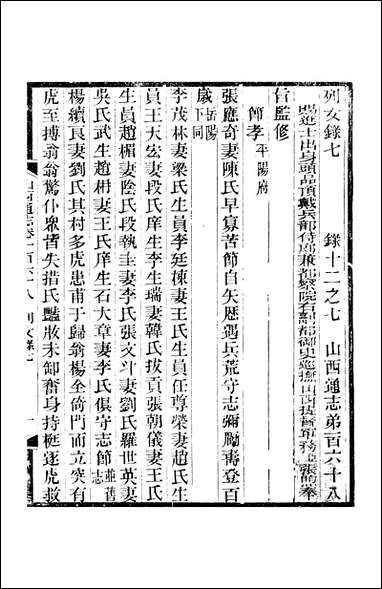 列女錄七　錄十二之七　山西通志弟百六十八
賜進士出身頭品頂戴兵部侍郎兼都察院右副都御史巡撫山西提督軍務臣張煦奉
旨監修
節孝平陽府
張應奇妻陳氏早算苦節自矢歷遇兵荒守志彌勵壽登百
歲岳陽下同
李茂林妻梁氏生員李廷棟妻王氏生員任尊榮妻趙氏生
員王天宏妻段氏庠生李生瑞妻韓氏拔貢張朝儀妻王氏
生員趙楣妻陰氏段執圭妻李氏張文斗妻劉氏羅世英妻
吳氏武生趙柟妻王氏庠生石大章妻李氏俱守志節並舊志
楊續良妻劉氏其村多虎患甫于歸翁楊全倚門而立突有
虎至搏翁翁驚仆眾皆失措氏豔妝未卸奮身持梃逐虎救
山西通志卷一百六十八　列女錄七　一